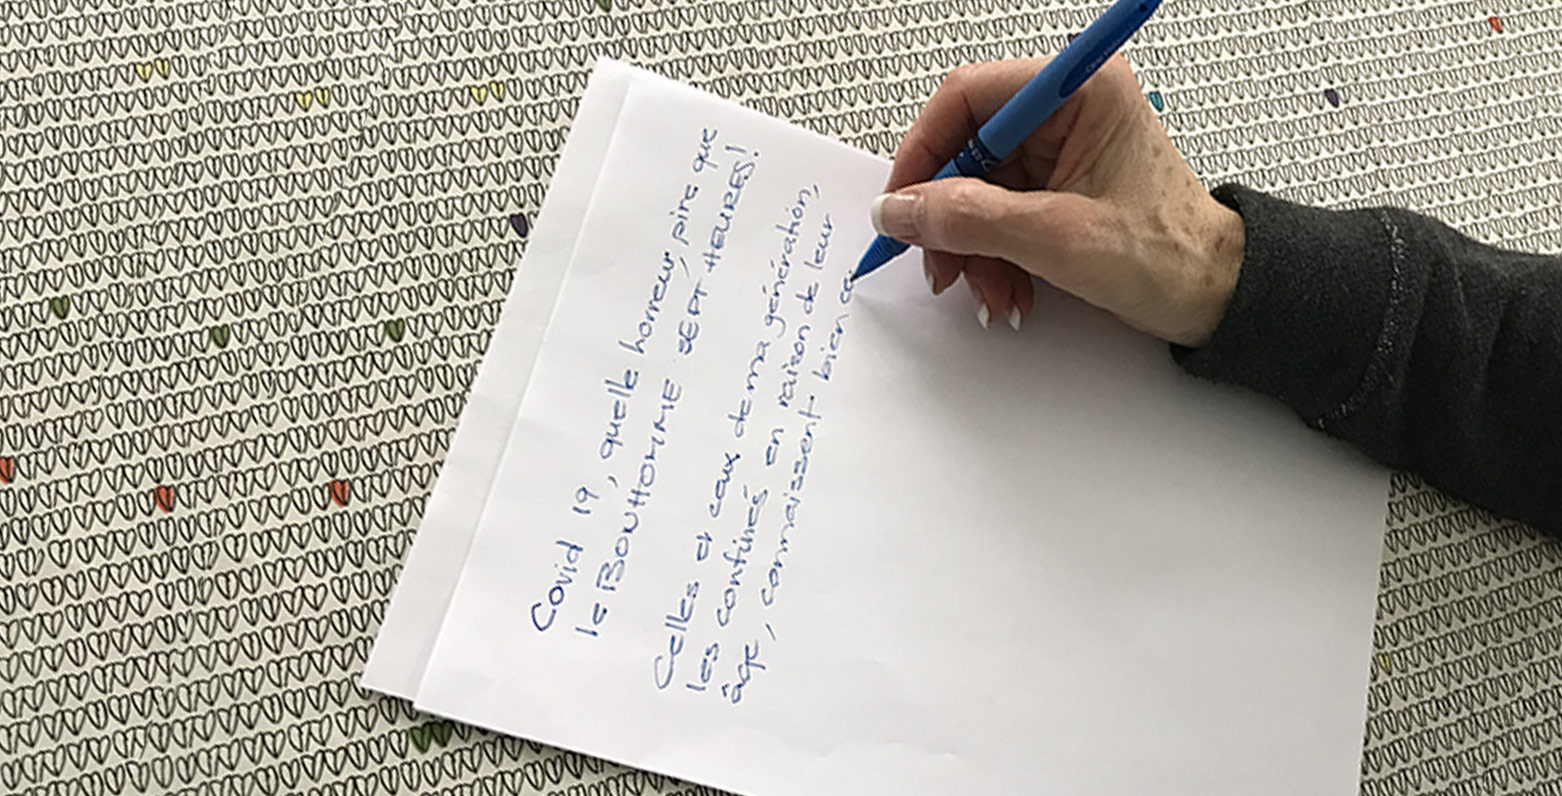 Covid 19, quelle horreur, pire que
le BONHOMME SEPT HEURES!
Celles et ceux de ma génération,
les confinés en raison de leur
âge, connaissent bien ce